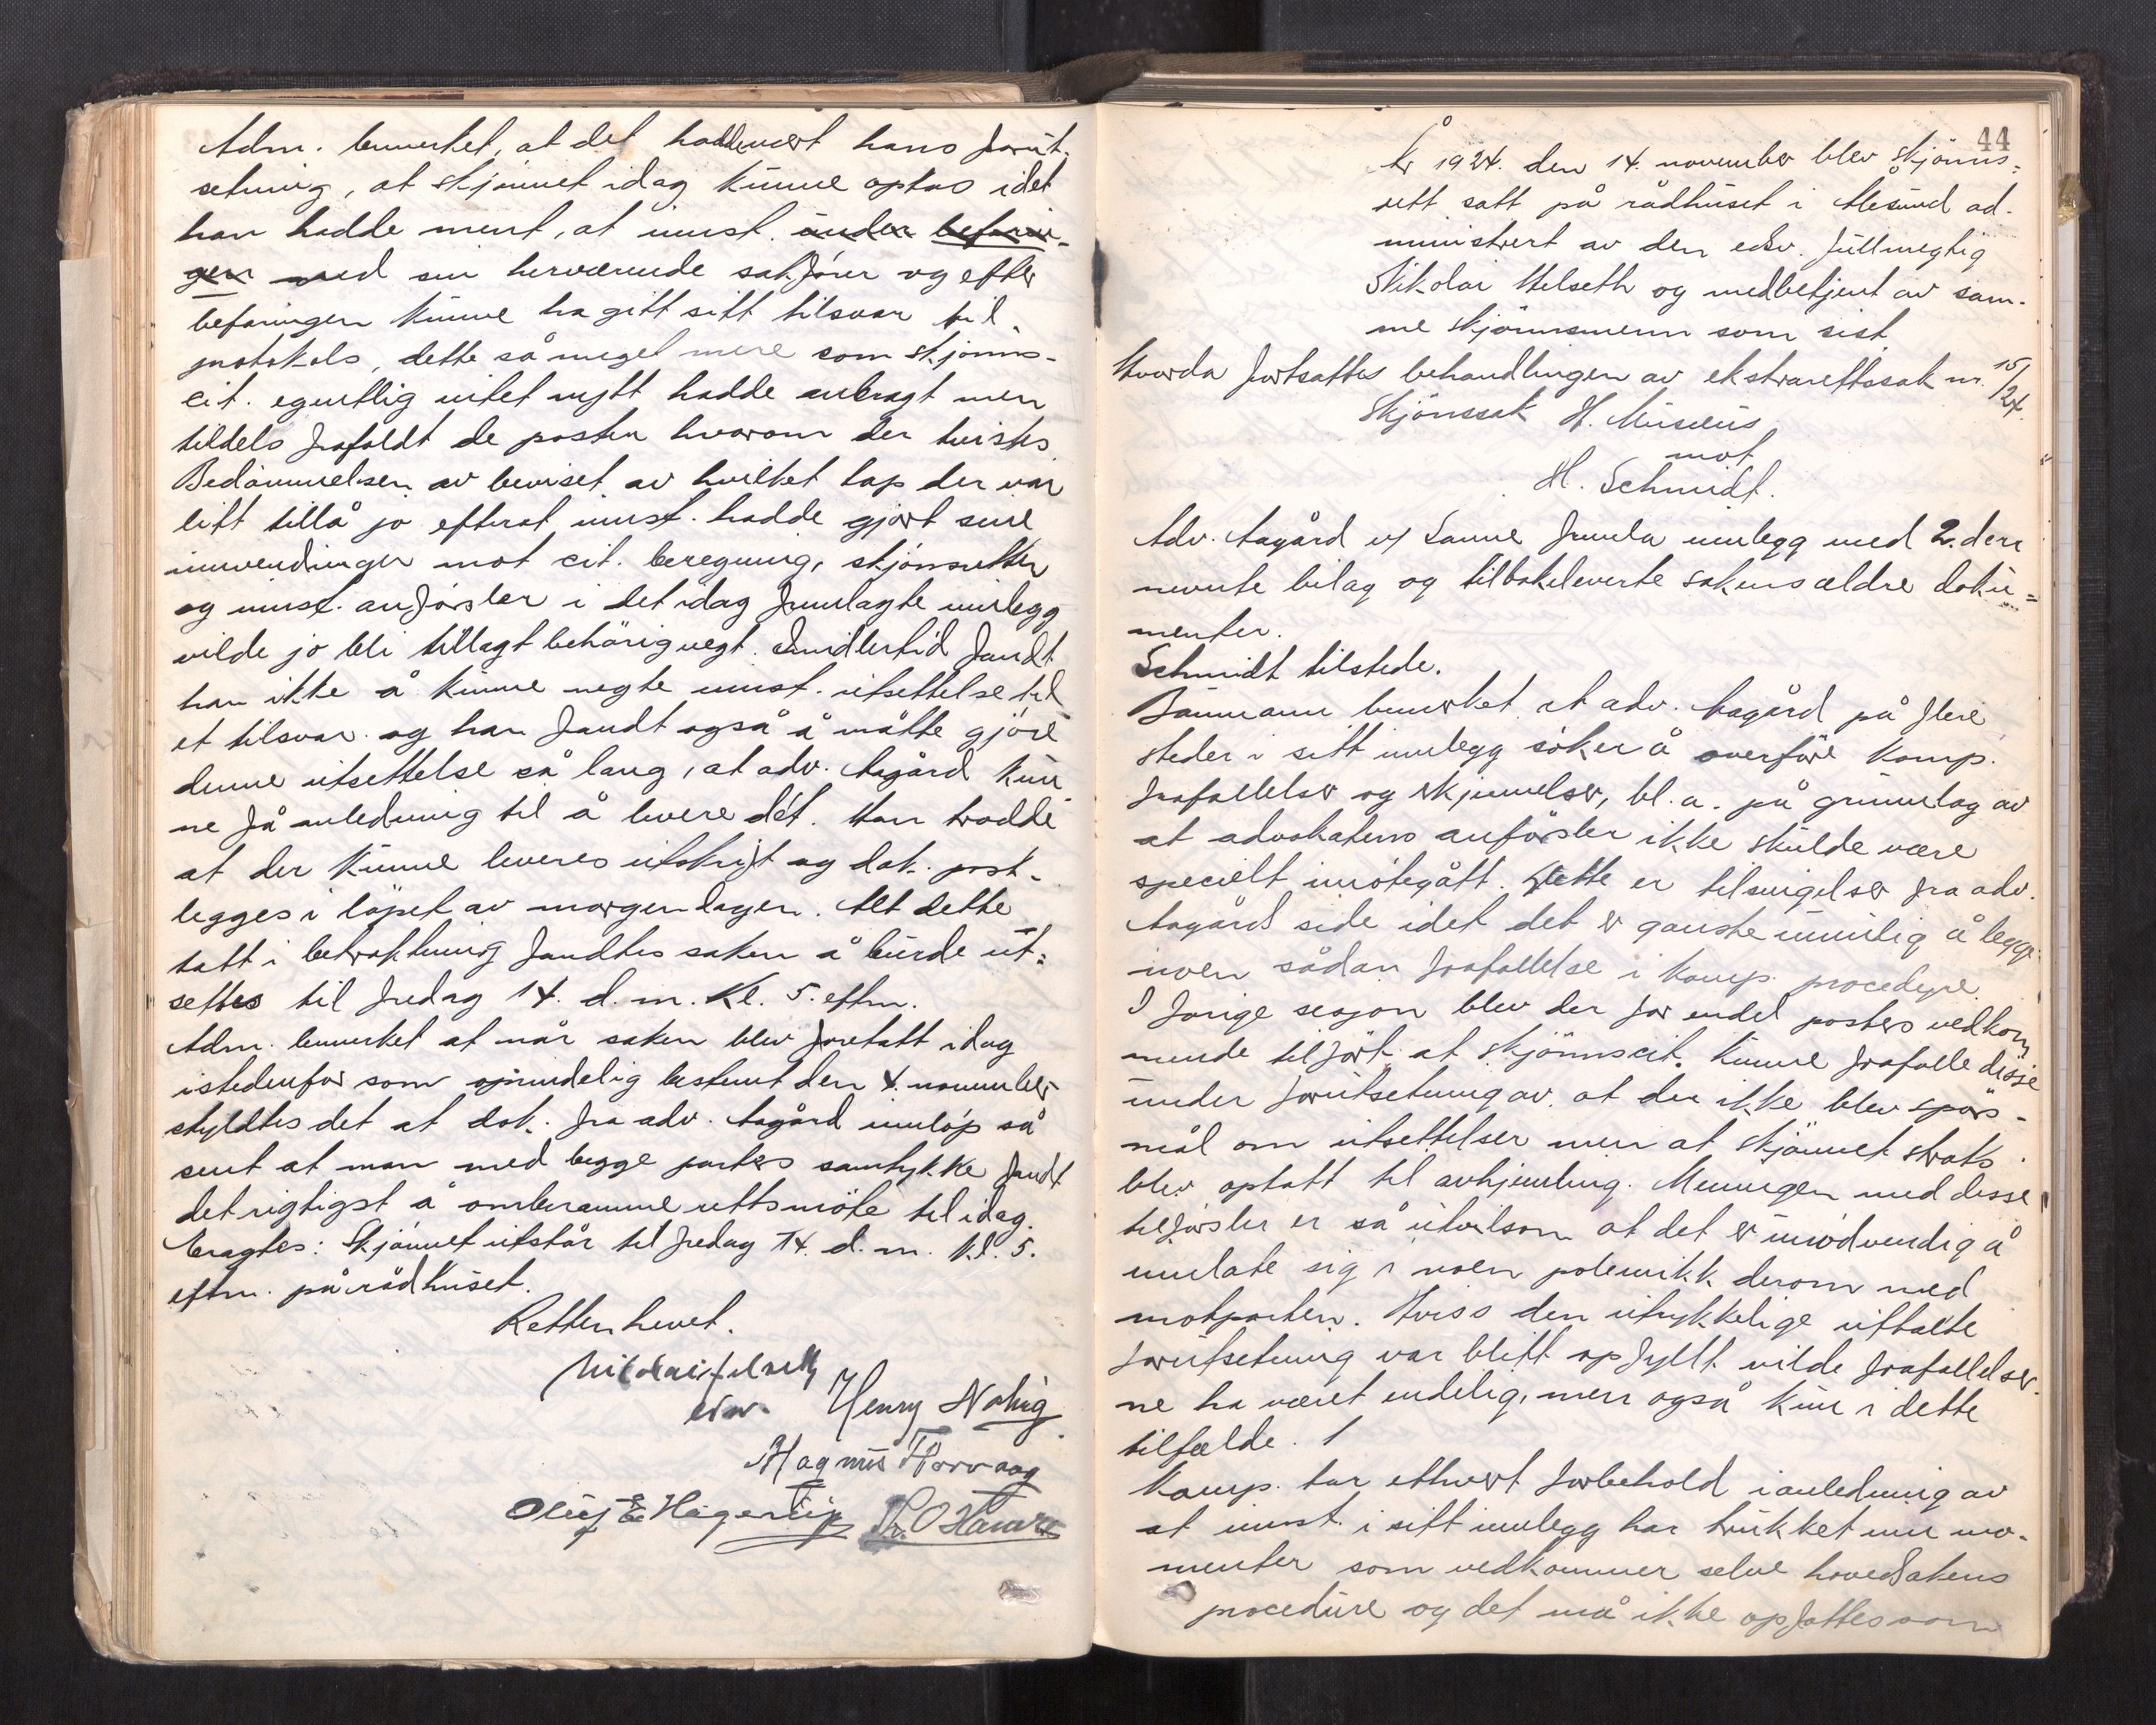 Adm. bemerket, at det hadde vært hans forut-
setning, at skjønnet idag kunne optas idet
han hadde ment, at innst. under befarin-
gen med sin herværende sakfører og efter
befaringen kunne ha gitt sitt tilsvar til
protokols, dette så meget mere som skjønns-
cit. egentlig intet nytt hadde anbragt men
tildels frafaldt de poster hvorom der tvistes.
Bedømmelsen av beviset av hvilket tap der var
litt tillå jo efterat innst. hadde gjort sine
innvendinger mot cit. beregning, skjønsretten
og innst. anførsler i det idag fremlagte innlegg
vilde jo bli tillagt behørig vegt. Imidlertid fandt
han ikke å kunne negte innst. utsettelse til
et tilsvar og han fandt også å måtte gjøre
denne utsettelse så lang, at adv. Aagård kun-
ne få anledning til å levere det. Han trodde
at der kunne leveres utskrift og dok. post-
legges i løpet av morgendagen. Alt dette
tatt i betraktning fandtes saken å burde ut-
settes til fredag 14. d. m. kl. 5. eftm.
Adm. bemerket at når saken blev foretatt idag
istedenfor som oprindelig bestemt den 4. november
skyldtes det at dok. fra adv. Aagård innløp så
sent at man med begge parters samtykke fandt
det rigtigst å omberamme rettsmøte til idag.
Eragtes: Skjønnet utstår til fredag 14. d. m. kl. 5.
eftm. på rådhuset.
Retten hevet.
Nikolai Helseth
edsv. Henry Nohig
Magnus Norvaag
Oluf E Hagerup
44
År 1924. den 14. november blev skjønns-
rett satt på rådhuset i Ålesund ad-
ministrert av den edsv. fullmegtig
Nikolai Helseth og medbetjent av sam-
me skjønnsmenn som sist
Hvorda fortsattes behandlingen av ekstrarettssak nr. 15/24.
Skjønssak H. Musæus
mot
H. Schmidt.
Adv. Aagård v/ Sanne fremla innlegg med 2. deri
nevnte bilag og tilbakeleverte sakens ældre doku-
menter.
Schmidt tilstede.
Baumann bemerket at adv. Aagård på flere
steder i sitt innlegg søker å overføre komp.
frafallelser og erkjennelser, bl. a. på grunnlag av
at advokatens anførsler ikke skulde være
specielt imøtegått. Dette er tilsnigelser fra adv.
Aagårds side idet det er ganske umulig å legge
noen sådan frafallelse i komp. procedyre.
I forige sesjon blev der for endel posters vedkom-
mende tilført at skjønnscit. kunne frafalle disse
under forutsetning av at der ikke blev spørs-
mål om utsettelser men at skjønnet straks
blev optatt til avhjemling. Meningen med disse
tilførsler er så utvilsom at det er unødvendig å
innlate sig i noen polemikk derom med
motparten. Hviss den utrykkelige uttalte
forutsetning var blitt opfyllt vilde frafallelser-
ne ha været endelig, men også kun i dette
tilfælde.
Komp. tar ethvert forbehold i anledning av
at innst. i sitt innlegg har trukket inn mo-
menter som vedkommer selve hovedsakens
procedure og det må ikke opfattes som